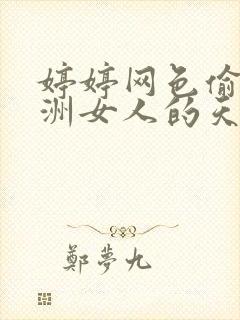 婷婷网色偷
洲女人的天
鄭夢九